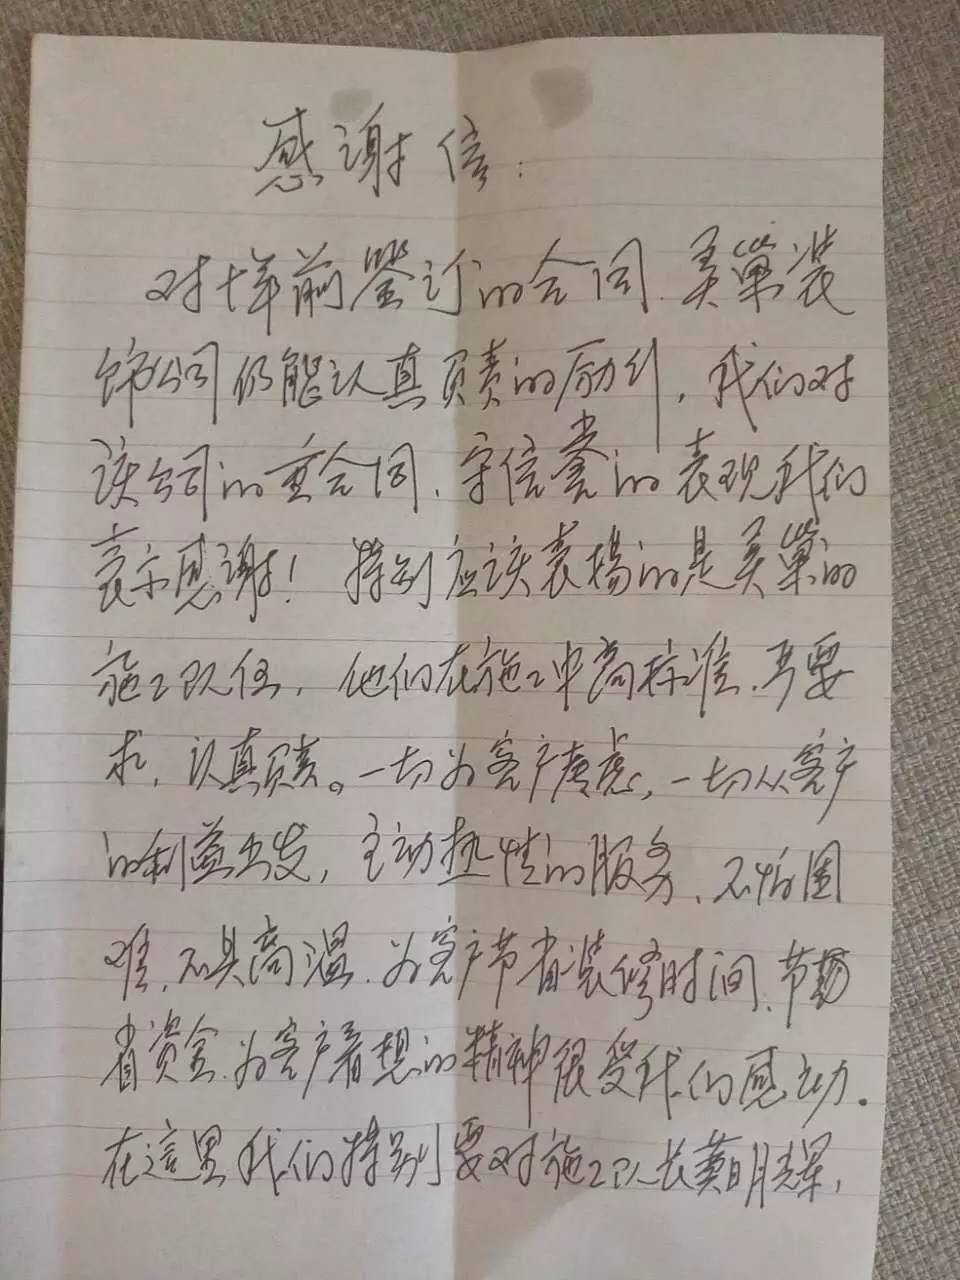 感谢信：
对十年前签订的合同、美巢装
饰公司仍能认真负责的履行，我们对
该公司的重合同、守信誉的表现我们
表示感谢！特别应该表扬的是美巢的
施工队伍，他们在施工中高标准、严要
求，认真负责。一切为客户考虑，一切从客户
的利益出发，主动热情的服务、不怕困
难，不惧高温、为客户节省装修时间、节
省资金、为客户着想的精神很受我们感动。
在這里我们特别要对施工队长黄明辉，